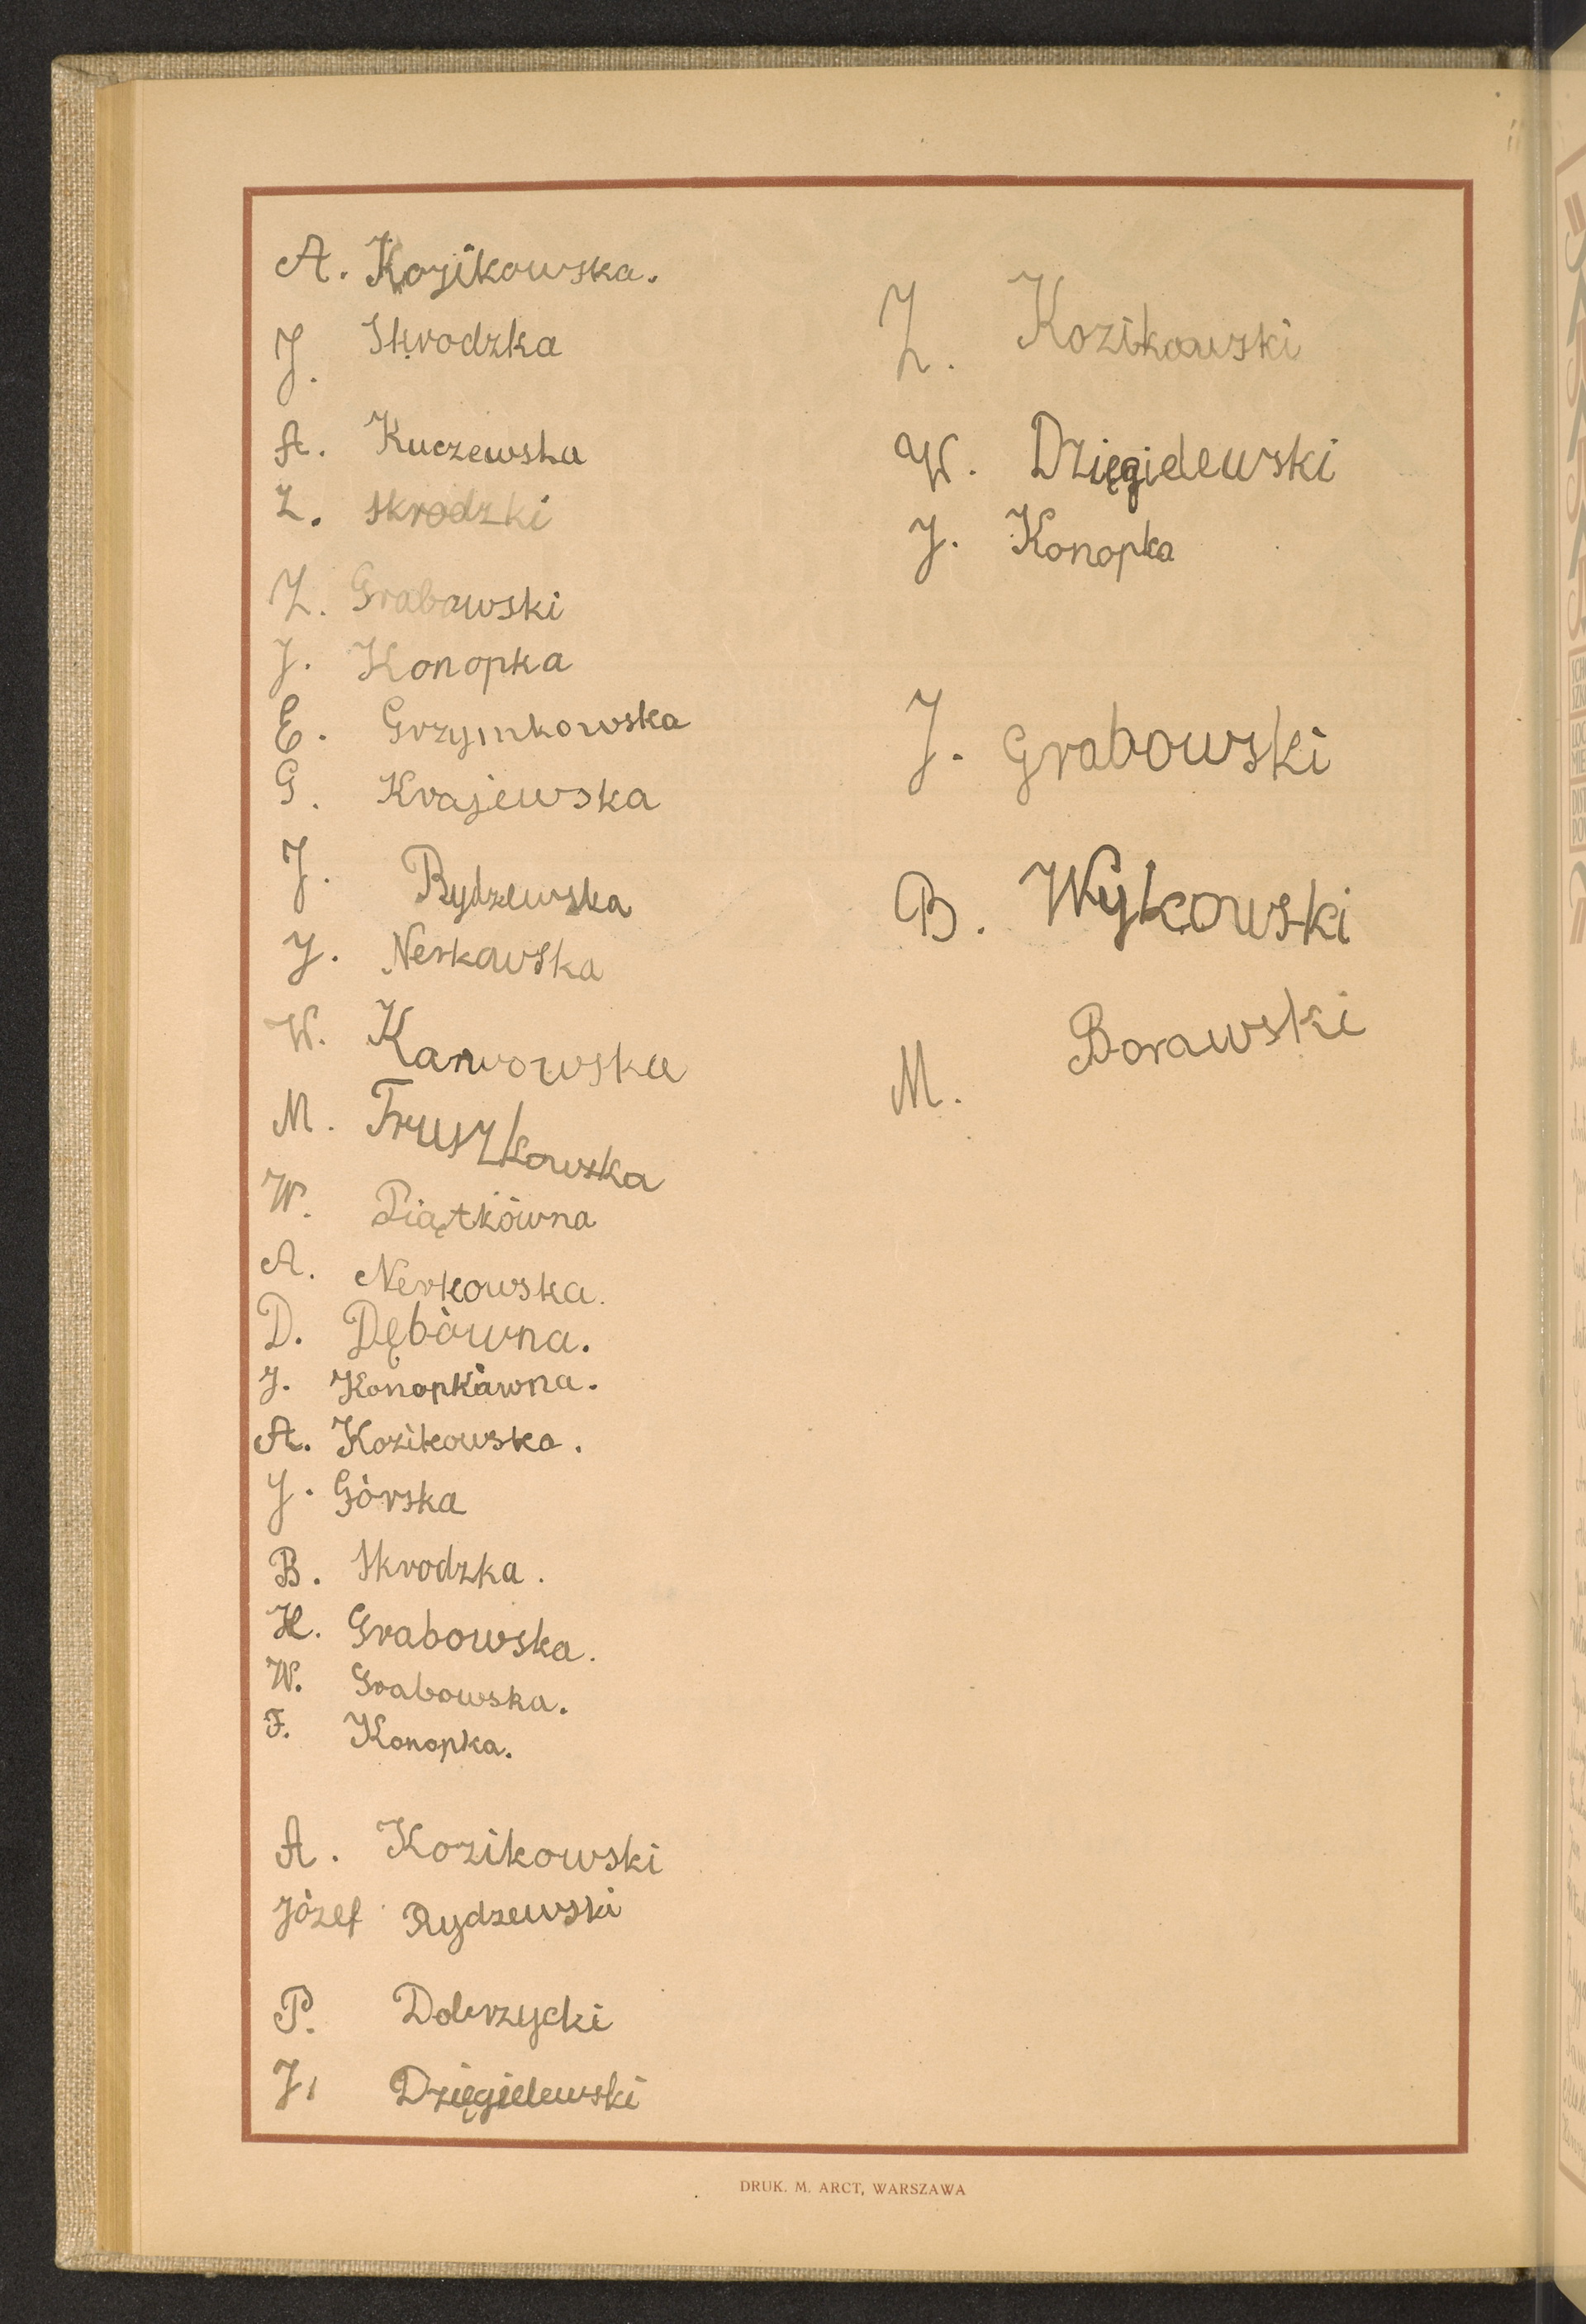 A. Kozikowska.
J. Skrodzka
A. Kuczewska
Z. Skrodzki
Z. Grabowski
J. Konopka
E. Grzymkowska
G. Krajewska
J. Rydzewska
J. Nerkowska
W. Karwowska
M. Truszkowska
W. Piątkówna
A. Nerkowska.
D. Dębówna.
J. Konopkówna.
A. Kozikowska.
J. Górska
B. Skrodzka.
H. Grabowska.
W. Grabowska.
F. Konopka.
A. Kozikowski
Józef Rydzewski
P. Dobrzycki
J. Dzięgielewski
Z. Kozikowski
W. Dzięgielewski
J. Konopka
J. Grabowski
B. Wykowski
M. Borawski
DRUK. M. ARCT, WARSZAWA